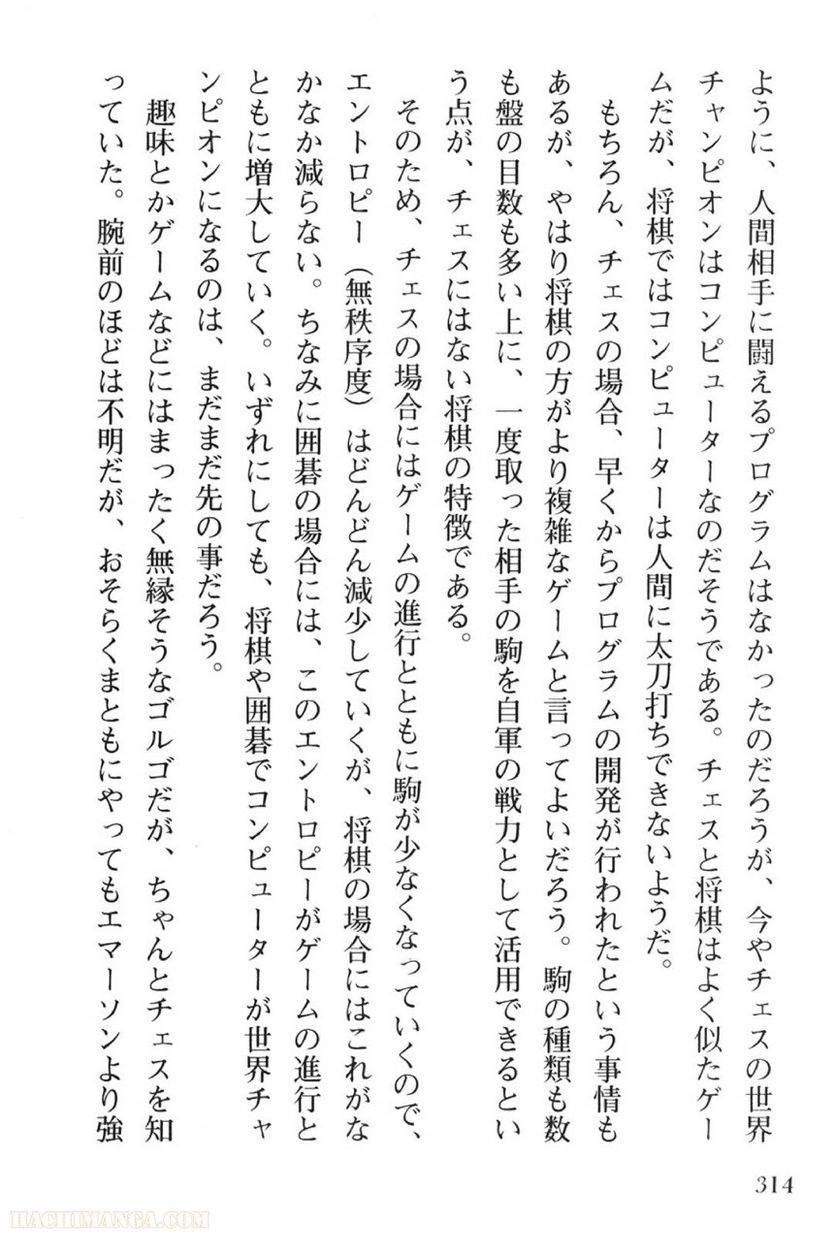 ように、人間相手に闘えるプログラムはなかったのだろうが、今やチェスの世界
チャンピオンはコンピューターなのだそうである。チェスと将棋はよく似たゲー
ムだが、将棋ではコンピューターは人間に太刀打ちできないようだ。
もちろん、チェスの場合、早くからプログラムの開発が行われたという事情も
あるが、やはり将棋の方がより複雑なゲームと言ってよいだろう。駒の種類も数
も盤の目数も多い上に、一度取った相手の駒を自軍の戦力として活用できるとい
う点が、チェスにはない将棋の特徴である。
そのため、チェスの場合にはゲームの進行とともに駒が少なくなっていくので、
エントロピー（無秩序度）はどんどん減少していくが、将棋の場合にはこれがな
かなか減らない。ちなみに囲碁の場合には、このエントロピーがゲームの進行と
ともに増大していく。いずれにしても、将棋や囲碁でコンピューターが世界チャ
ンピオンになるのは、まだまだ先の事だろう。
趣味とかゲームなどにはまったく無縁そうなゴルゴだが、ちゃんとチェスを知
っていた。腕前のほどは不明だが、おそらくまともにやってもエマーソンより強
314
HACHIMANGA.COM